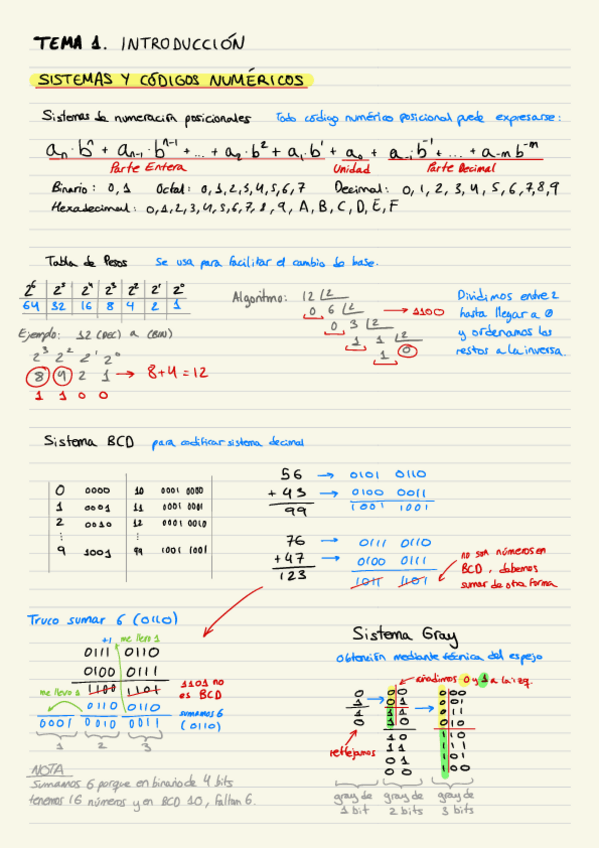 TEMA 1. INTRODUCCIÓN
SISTEMAS Y CÓDIGOS NUMÉRICOS
Sistemas de numeración posicionales Todo código numérico posicional puede expresarse:
aₙ·bⁿ + aₙ₋₁·bⁿ⁻¹ + ... + a₂·b² + a₁·b¹ + a₀ + a₋₁b⁻¹ + ... + a₋m b⁻ᵐ
Parte Entera Unidad Parte Decimal
Binario: 0,1 Octal: 0,1,2,3,4,5,6,7 Decimal: 0,1,2,3,4,5,6,7,8,9
Hexadecimal: 0,1,2,3,4,5,6,7,8,9, A,B,C,D,E,F
Tabla de Pesos Se usa para facilitar el cambio de base.
2⁶ 2⁵ 2⁴ 2³ 2² 2¹ 2⁰
64 32 16 8 4 2 1
Ejemplo: 12 (DEC) a (BIN)
2³ 2² 2¹ 2⁰
8 4 2 1 → 8+4=12
1 1 0 0
Algoritmo: 12 2
0 6 2 → 1100
0 3 2
1 1 2
1 0
Dividimos entre 2
hasta llegar a 0
y ordenamos los
restos a la inversa.
Sistema BCD para codificar sistema decimal
0 0000 10 0001 0000
1 0001 11 0001 0001
2 0010 12 0001 0010
⋮ ⋮
9 1001 99 1001 1001
56 → 0101 0110
+ 43 → 0100 0011
99 1001 1001
76 → 0111 0110
+47 → 0100 0111
123 1011 1101
no son números en
BCD, debemos
sumar de otra forma
Truco sumar 6 (0110)
+1 me llevo 1
0111 0110
0100 0111
me llevo 1 1100 1101
1101 no
es BCD
0110 0110
sumamos 6
(0110)
0001 0010 0011
1 2 3
NOTA
Sumamos 6 porque en binario de 4 bits
tenemos 16 números y en BCD 10, faltan 6.
Sistema Gray
Obtención mediante técnica del espejo
añadimos 0 y 1 a la izq.
0 00 000
1 01 001
1 11 011
0 10 010
10 110
11 111
01 101
00 100
reflejamos
gray de
1 bit
gray de
2 bits
gray de
3 bits